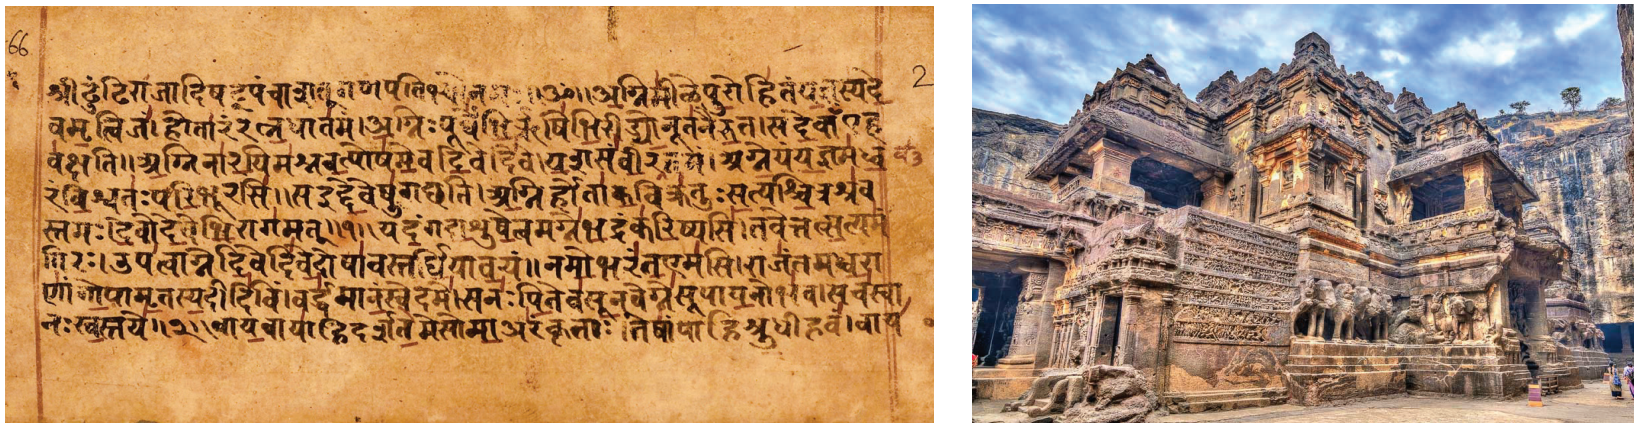 66
2
श्रीढुंढिराजादिषट्पंचाशत्गणपतिभ्योनमः॥ॐ॥अग्निमीळेपुरोहितंयज्ञस्यदे
वमृत्विजं।होतारंरत्नधातमं।अग्निःपूर्वेभिर्ऋषिभिरीड्योनूतनैरुत।सदेवाँएह
वक्षति॥अग्निनारयिमश्नवत्पोषमेवदिवेदिवे।यशसंवीरवत्तमं।अग्नेयंयज्ञमध्व
रंविश्वतःपरिभूरसि॥सइद्देवेषुगच्छति।अग्निर्होताकविक्रतुःसत्यश्चित्रश्रव
स्तमः।देवोदेवेभिरागमत्॥१॥यदंगदाशुषेत्वमग्नेभद्रंकरिष्यसि।तवेत्तत्सत्यमं
गिरः।उपत्वाग्नेदिवेदिवेदोषावस्तर्धियावयं॥नमोभरंतएमसि।राजंतमध्वरा
णांगोपामृतस्यदीदिविं।वर्द्धमानंस्वेदमे।सनःपितेवसूनवेग्नेसूपायनोभव।सचस्वा
नःस्वस्तये॥२॥वायवायाहिदर्शतेमेसोमाअरंकृताः।तेषांपाहिश्रुधीहवं।वाय